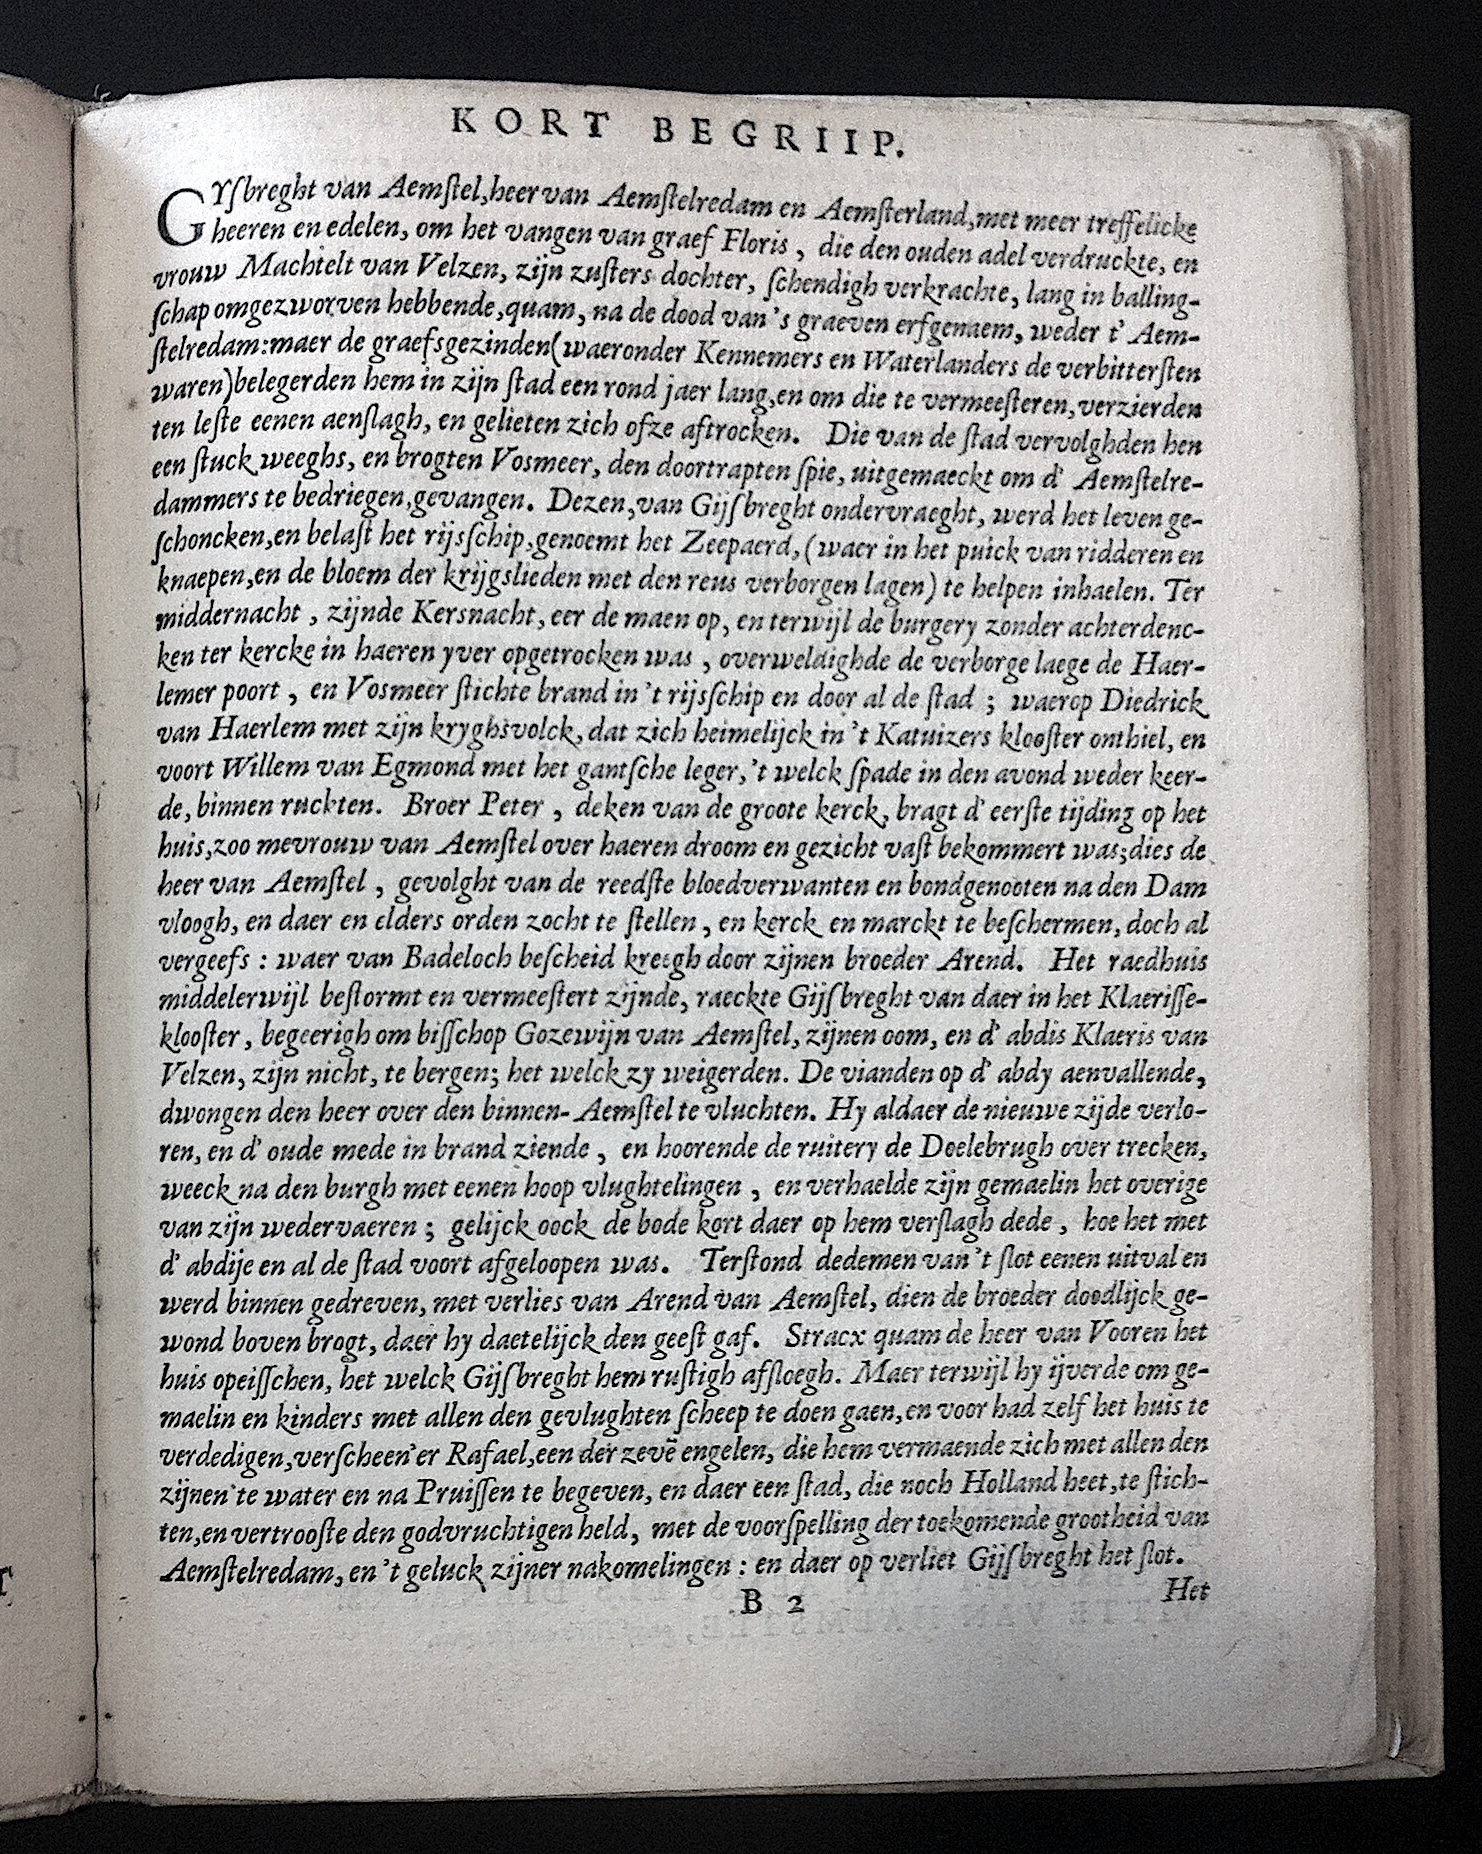 KORT BEGRIIP.
GYſbreght van Aemſtel, heer van Aemſtelredam en Aemſterland, met meer treffelicke
heeren en edelen, om het vangen van graef Floris, die den ouden adel verdruckte, en
vrouw Machtelt van Velzen, zijn zuſters dochter, ſchendigh verkrachte, lang in balling-
ſchap omgezworven hebbende, quam, na de dood van 's graeven erfgenaem, weder t' Aem-
ſtelredam: maer de graefsgezinden (waeronder Kennemers en Waterlanders de verbitterſten
waren) belegerden hem in zijn ſtad een rond jaer lang, en om die te vermeeſteren, verzierden
ten leſte eenen aenſlagh, en gelieten zich ofze aftrocken. Die van de ſtad vervolghden hen
een ſtuck weeghs, en brogten Vosmeer, den doortrapten ſpie, uitgemaeckt om d' Aemſtelre-
dammers te bedriegen, gevangen. Dezen, van Gijſbreght ondervraeght, werd het leven ge-
ſchoncken, en belaſt het rijsſchip, genoemt het Zeepaerd, (waer in het puick van ridderen en
knaepen, en de bloem der krijgslieden met den reus verborgen lagen) te helpen inhaelen. Ter
middernacht, zijnde Kersnacht, eer de maen op, en terwijl de burgery zonder achterdenc-
ken ter kercke in haeren yver opgetrocken was, overweldighde de verborge laege de Haer-
lemer poort, en Vosmeer ſtichte brand in 't rijsſchip en door al de ſtad; waerop Diedrick
van Haerlem met zijn kryghsvolck, dat zich heimelijck in 't Katuizers klooſter onthiel, en
voort Willem van Egmond met het gantſche leger, 't welck ſpade in den avond weder keer-
de, binnen ruckten. Broer Peter, deken van de groote kerck, bragt d' eerſte tijding op het
huis, zoo mevrouw van Aemſtel over haeren droom en gezicht vaſt bekommert was; dies de
heer van Aemſtel, gevolght van de reedſte bloedverwanten en bondgenooten na den Dam
vloogh, en daer en elders orden zocht te ſtellen, en kerck en marckt te beſchermen, doch al
vergeefs: waer van Badeloch beſcheid kreegh door zijnen broeder Arend. Het raedhuis
middelerwijl beſtormt en vermeeſtert zijnde, raeckte Gijſbreght van daer in het Klaeriſſe-
klooſter, begeerigh om biſſchop Gozewijn van Aemſtel, zijnen oom, en d' abdis Klaeris van
Velzen, zijn nicht, te bergen; het welck zy weigerden. De vianden op d' abdy aenvallende,
dwongen den heer over den binnen-Aemſtel te vluchten. Hy aldaer de nieuwe zijde verlo-
ren, en d' oude mede in brand ziende, en hoorende de ruitery de Doelebrugh over trecken,
weeck na den burgh met eenen hoop vlughtelingen, en verhaelde zijn gemaelin het overige
van zijn wedervaeren; gelijck oock de bode kort daer op hem verſlagh dede, hoe het met
d' abdije en al de ſtad voort afgeloopen was. Terſtond dedemen van 't ſlot eenen uitval en
werd binnen gedreven, met verlies van Arend van Aemſtel, dien de broeder doodlijck ge-
wond boven brogt, daer hy daetelijck den geeſt gaf. Stracx quam de heer van Vooren het
huis opeiſſchen, het welck Gijſbreght hem ruſtigh afſloegh. Maer terwijl hy ijverde om ge-
maelin en kinders met allen den gevlughten ſcheep te doen gaen, en voor had zelf het huis te
verdedigen, verſcheen'er Rafael, een der zevē engelen, die hem vermaende zich met allen den
zijnen te water en na Pruiſſen te begeven, en daer een ſtad, die noch Holland heet, te ſtich-
ten, en vertrooſte den godvruchtigen held, met de voorſpelling der toekomende grootheid van
Aemſtelredam, en 't geluck zijner nakomelingen: en daer op verliet Gijſbreght het ſlot.
B 2 Het